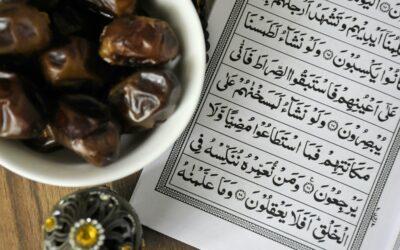 أَيْدِيهِمْ وَتَشْهَدُ أَرْجُلُهُمْ
كَانُوا يَكْسِبُونَ ۝ وَلَوْ نَشَاءُ لَطَمَسْنَا
عَلَىٰ أَعْيُنِهِمْ فَاسْتَبَقُوا الصِّرَاطَ فَأَنَّىٰ
يُبْصِرُونَ ۝ وَلَوْ نَشَاءُ لَمَسَخْنَٰهُمْ عَلَىٰ
مَكَانَتِهِمْ فَمَا اسْتَطَاعُوا مُضِيًّا وَلَا
يَرْجِعُونَ ۝ وَمَنْ نُعَمِّرْهُ نُنَكِّسْهُ فِي
الْخَلْقِ أَفَلَا يَعْقِلُونَ ۝ وَمَا عَلَّمْنَٰهُ